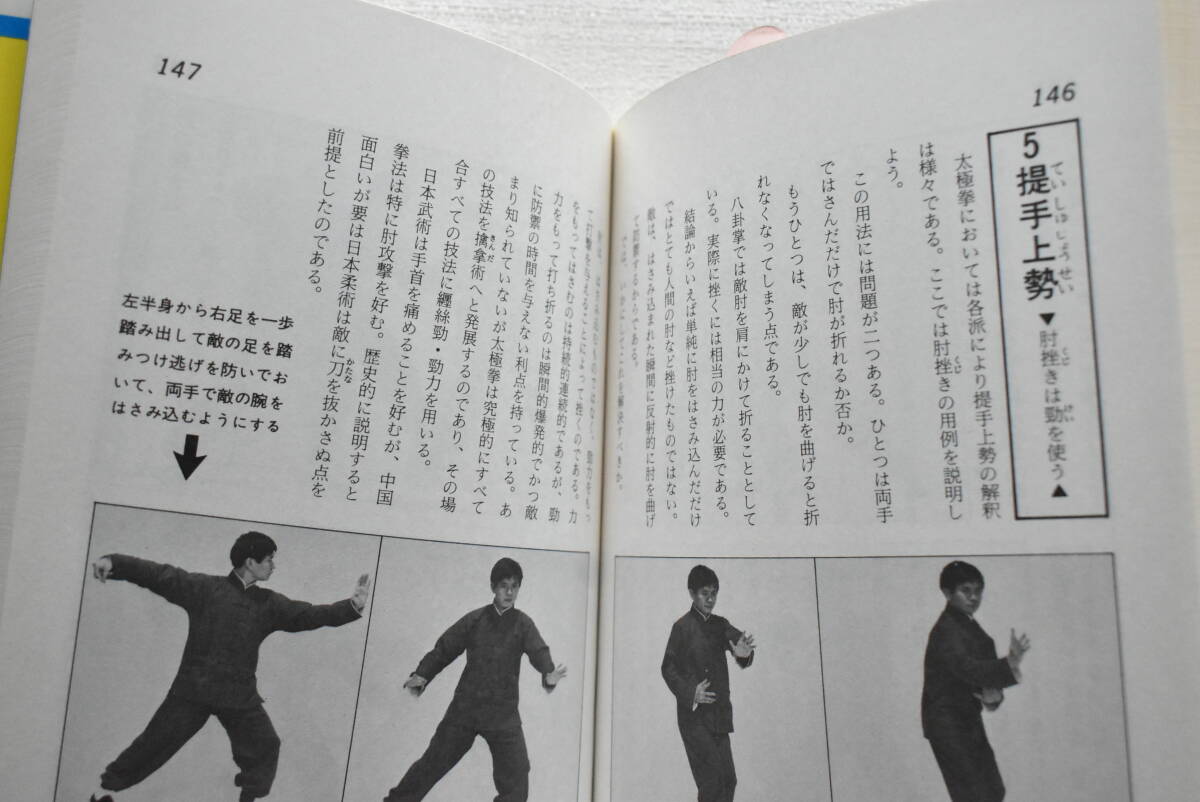 146
5 提手上勢 ▼肘挫きは勁を使う▲
ていしゅじょうせい
くじ
けい
太極拳においては各派により提手上勢の解釈
は様々である。ここでは肘挫きの用例を説明し
くじ
よう。
この用法には問題が二つある。ひとつは両手
ではさんだだけで肘が折れるか否か。
もうひとつは、敵が少しでも肘を曲げると折
れなくなってしまう点である。
八卦掌では敵肘を肩にかけて折ることとして
いる。実際に挫くには相当の力が必要である。
結論からいえば単純に肘をはさみ込んだだけ
ではとても人間の肘など挫けたものではない。
敵は、はさみ込まれた瞬間に反射的に肘を曲げ
て防禦するからである。
では、いかにしてこれを解決すべきか。
147
て打撃を与えることによって挫くのである。力
をもってはさむのは持続的連続的であるが、勁
力をもって打ち折るのは瞬間的爆発的でかつ敵
に防禦の時間を与えない利点を持っている。あ
まり知られていないが太極拳は究極的にすべて
の技法を擒拿術へと発展するのであり、その場
きんだ
合すべての技法に纏絲勁・勁力を用いる。
日本武術は手首を痛めることを好むが、中国
拳法は特に肘攻撃を好む。歴史的に説明すると
面白いが要は日本柔術は敵に刀を抜かさぬ点を
かたな
前提としたのである。
左半身から右足を一歩
踏み出して敵の足を踏
みつけ逃げを防いでお
いて、両手で敵の腕を
はさみ込むようにする